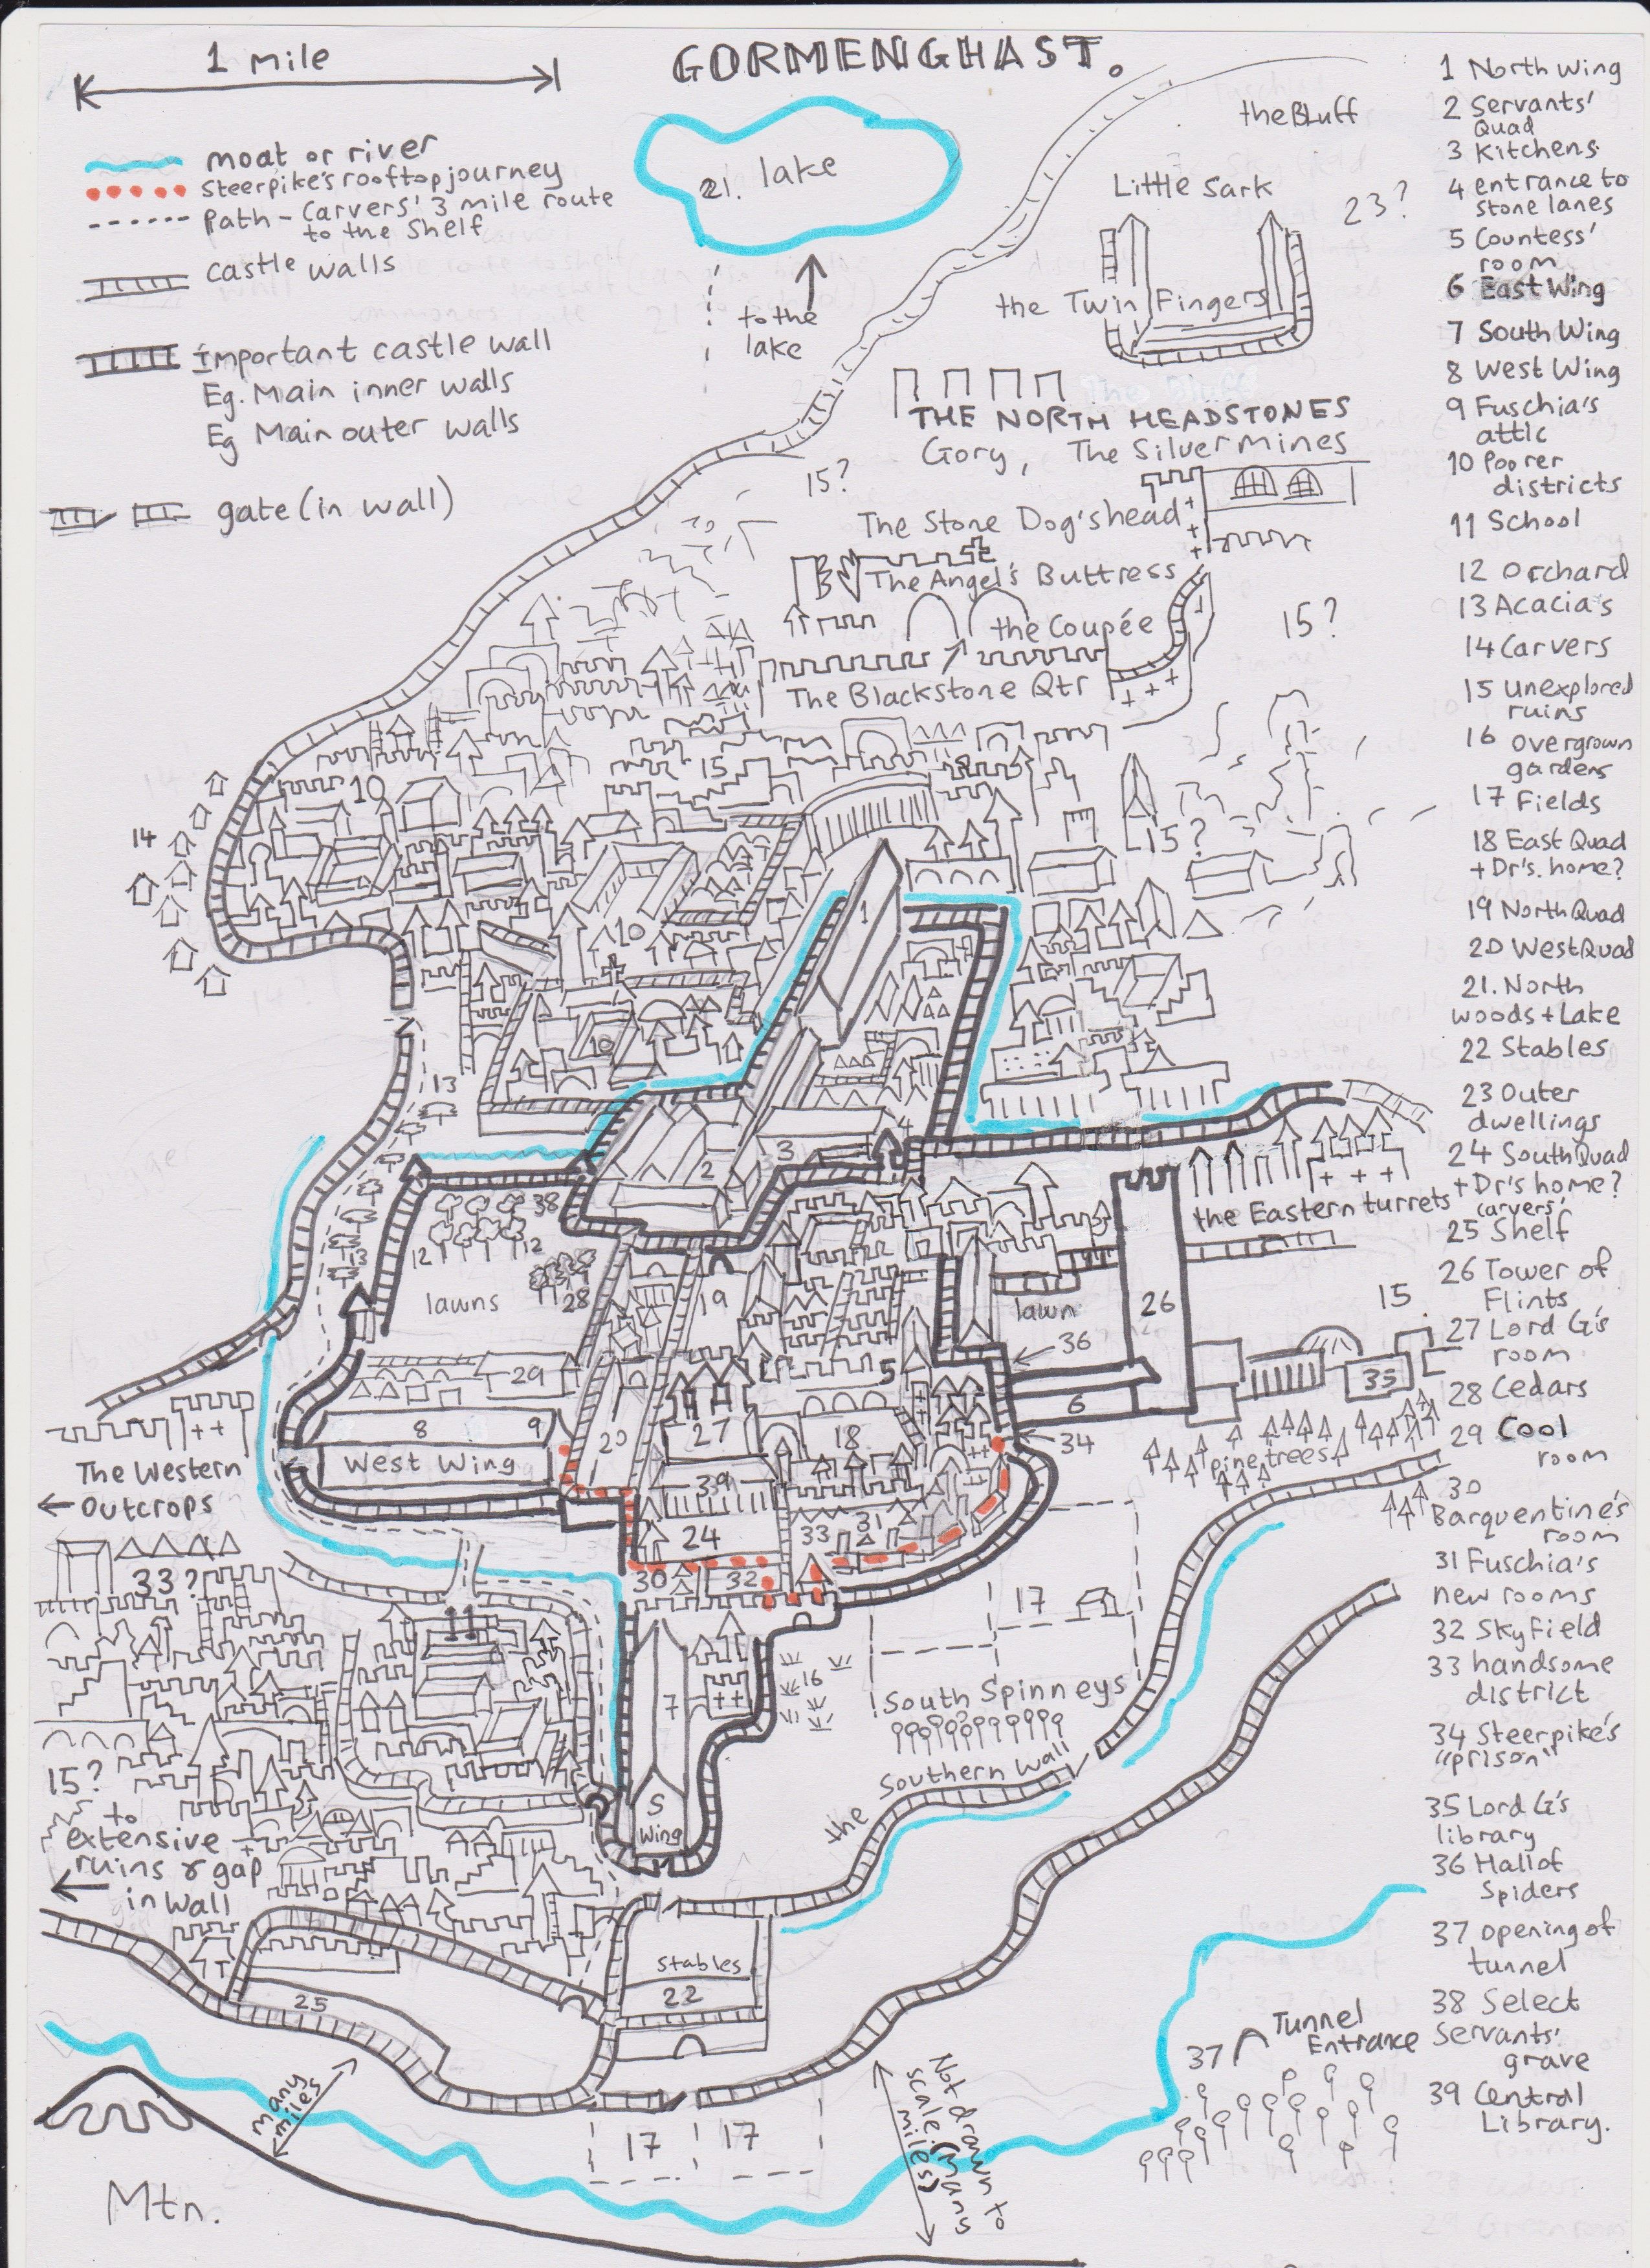 GORMENGHAST.
1 mile
moat or river
Steerpike's rooftop journey
Path - Carvers' 3 mile route
to the Shelf
castle walls
Important castle wall
Eg. Main inner walls
Eg Main outer walls
gate (in wall)
21. lake
to the
lake
the Bluff
Little Sark
23?
the Twin Fingers
THE NORTH HEADSTONES
Gory, The Silver Mines
15?
The Stone Dog's head
The Angel's Buttress
the Coupée
15?
The Blackstone Qtr
15
10
14
15?
10
1
10
13
2
3
4
38
12
12
13
28
lawns
19
the Eastern turrets
lawn
26
36
15
29
5
35
8
9
West Wing
20
27
18
6
34
pine trees
The Western
Outcrops
39
24
33
31
30
32
33?
11
17
7
16
South Spinneys
the Southern Wall
15?
to
extensive
ruins & gap
in wall
S
Wing
stables
22
25
37
Tunnel
Entrance
many
miles
Not drawn to
scale (many
miles)
17
17
Mtn.
1 North wing
2 Servants'
Quad
3 Kitchens
4 entrance to
stone lanes
5 Countess'
room
6 East Wing
7 South Wing
8 West Wing
9 Fuschia's
attic
10 Poorer
districts
11 School
12 Orchard
13 Acacia's
14 Carvers
15 unexplored
ruins
16 overgrown
gardens
17 Fields
18 East Quad
+Dr's. home?
19 North Quad
20 West Quad
21. North
woods + Lake
22 Stables
23 Outer
dwellings
24 South Quad
+Dr's home?
carvers'
25 Shelf
26 Tower of
Flints
27 Lord G's
room
28 Cedars
29 Cool
room
30
Barquentine's
room
31 Fuschia's
new rooms
32 Skyfield
33 handsome
district
34 Steerpike's
"prison"
35 Lord G's
library
36 Hall of
Spiders
37 opening of
tunnel
38 Select
Servants'
grave
39 Central
Library.